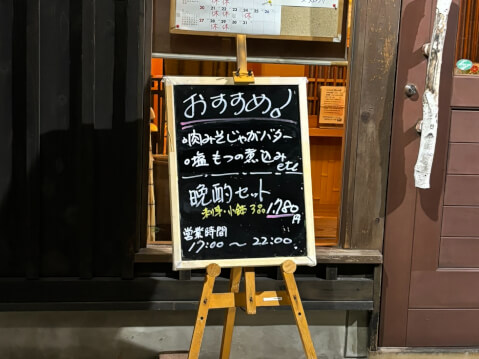 おすすめ！
•肉みそじゃがバター
•塩もつの煮込み
etc
晩酌セット
刺身・小鉢3品 1,780円
営業時間
17:00～22:00